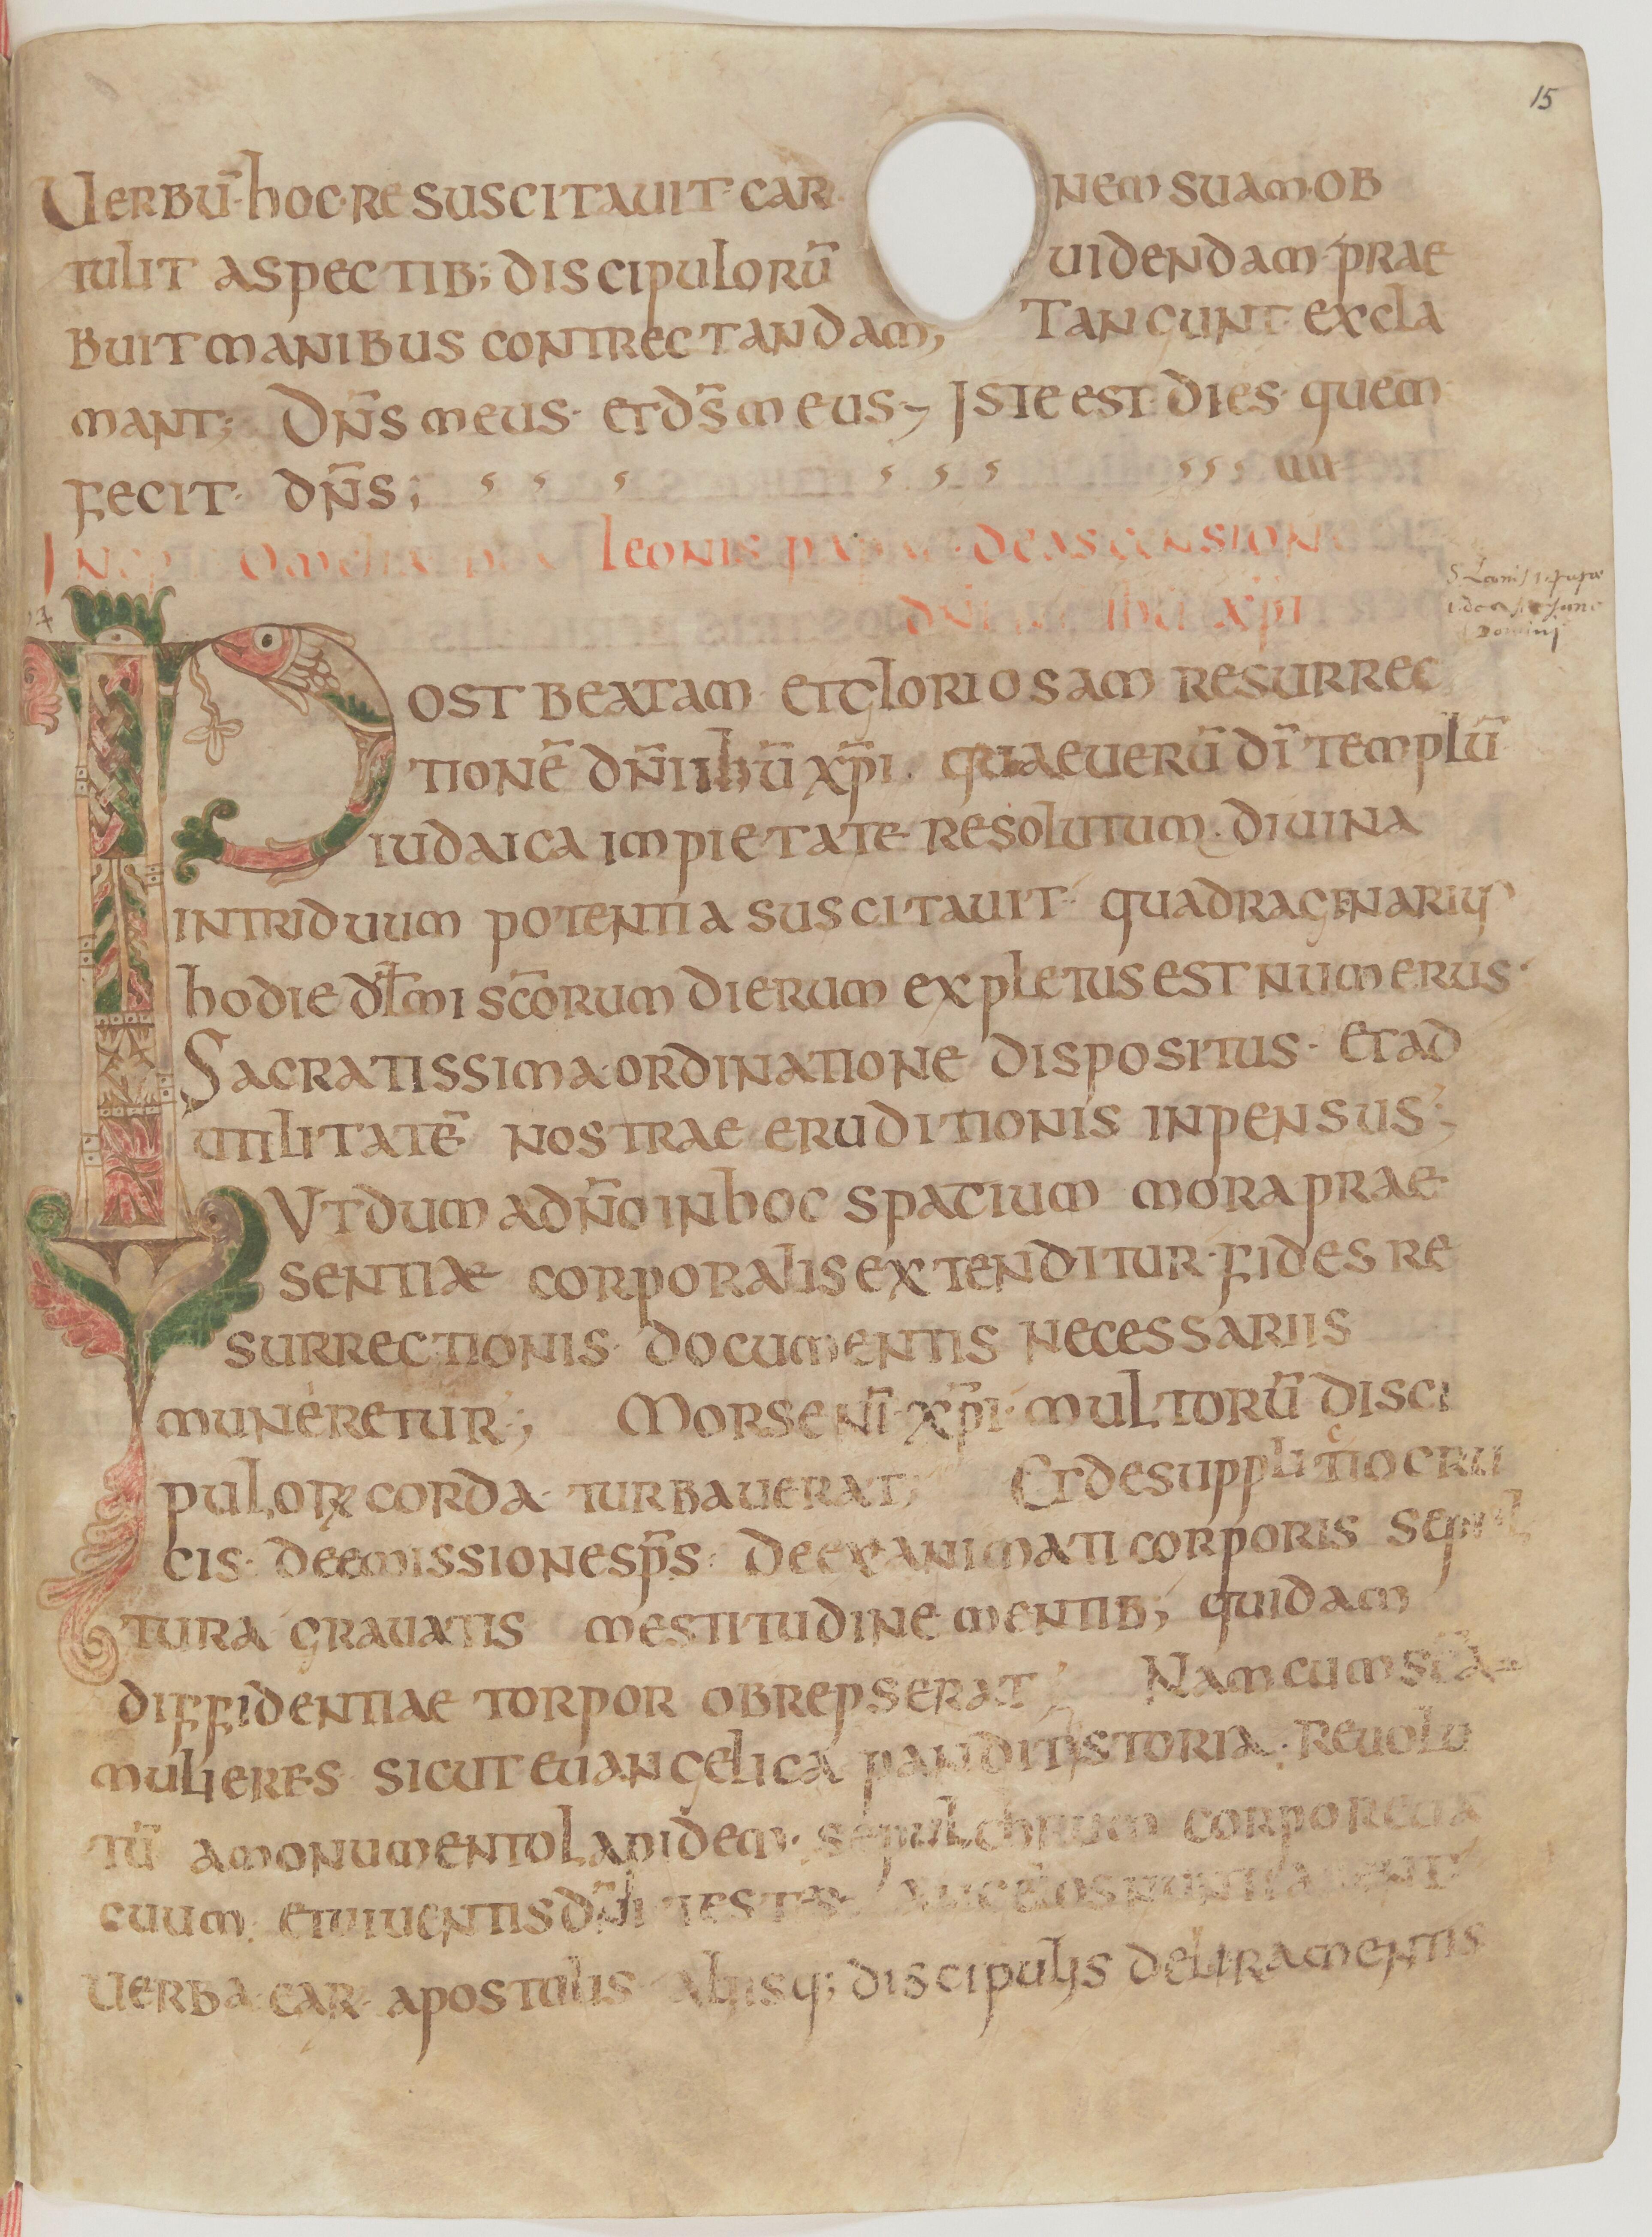 15
UERBŪ·hOC·RESUSCITAUIT·CAR NEM SUAM·OB
TULIT ASPECTIB; DISCIPULORŪ UIDENDAM·PRAE
BUIT MANIBUS CONTRECTANDAM, TANGUNT·EXCLA
MANT; DN̄S MEUS· ET DS̄ MEUS; ISTE EST·DIES·QUEM
FECIT· DN̄S;
LEONIS DE ASCENSION
DN̄I IHŪ XP̄I
POST BEATAM· ET GLORIOSAM RESURREC
TIONĒ DN̄I IHŪ XP̄I. QUAE UERŪ DĪ TEMPLŪ
IUDAICA IMPIETATE RESOLUTUM. DIUINA
IN TRIDUUM POTENTIA SUSCITAUIT· QUADRAGENARIUS
HODIE DL̄MI SC̄ORUM DIERUM EXPLETUS EST NUMERUS·
SACRATISSIMA·ORDINATIONE DISPOSITUS· ET AD
UTILITATĒ NOSTRAE ERUDITIONIS INPENSUS;
UT DUM A DN̄O IN HOC SPATIUM MORA PRAE
SENTIÆ CORPORALIS EXTENDITUR·FIDES RE
SURRECTIONIS· DOCUMENTIS NECESSARIIS
MUNERETUR; MORS ENĪ·XP̄I·MULTORŪ DISCI
PULORꝜ CORDA· TURBAUERAT; ET DE SUPPLITIO CRU
CIS· DE EMISSIONE SP̄S· DE EXANIMATI CORPORIS SEPUL
TURA GRAUATIS MESTITUDINE MENTIB; QUIDAM
DIFFIDENTIAE TORPOR OBREPSERAT; NAM CUM SC̄A
MULIERES SICUT EUANGELICA PANDIT hISTORIA·REUOLU
TŪ A MONUMENTO LAPIDEM· SEPULCHRUM CORPORE UA
CUUM· ET UIUENTIS DN̄I TESTES ANGELOS NUNTIARENT
UERBA·EAR· APOSTOLIS ALIISQ; DISCIPULIS DELIRAMENTIS